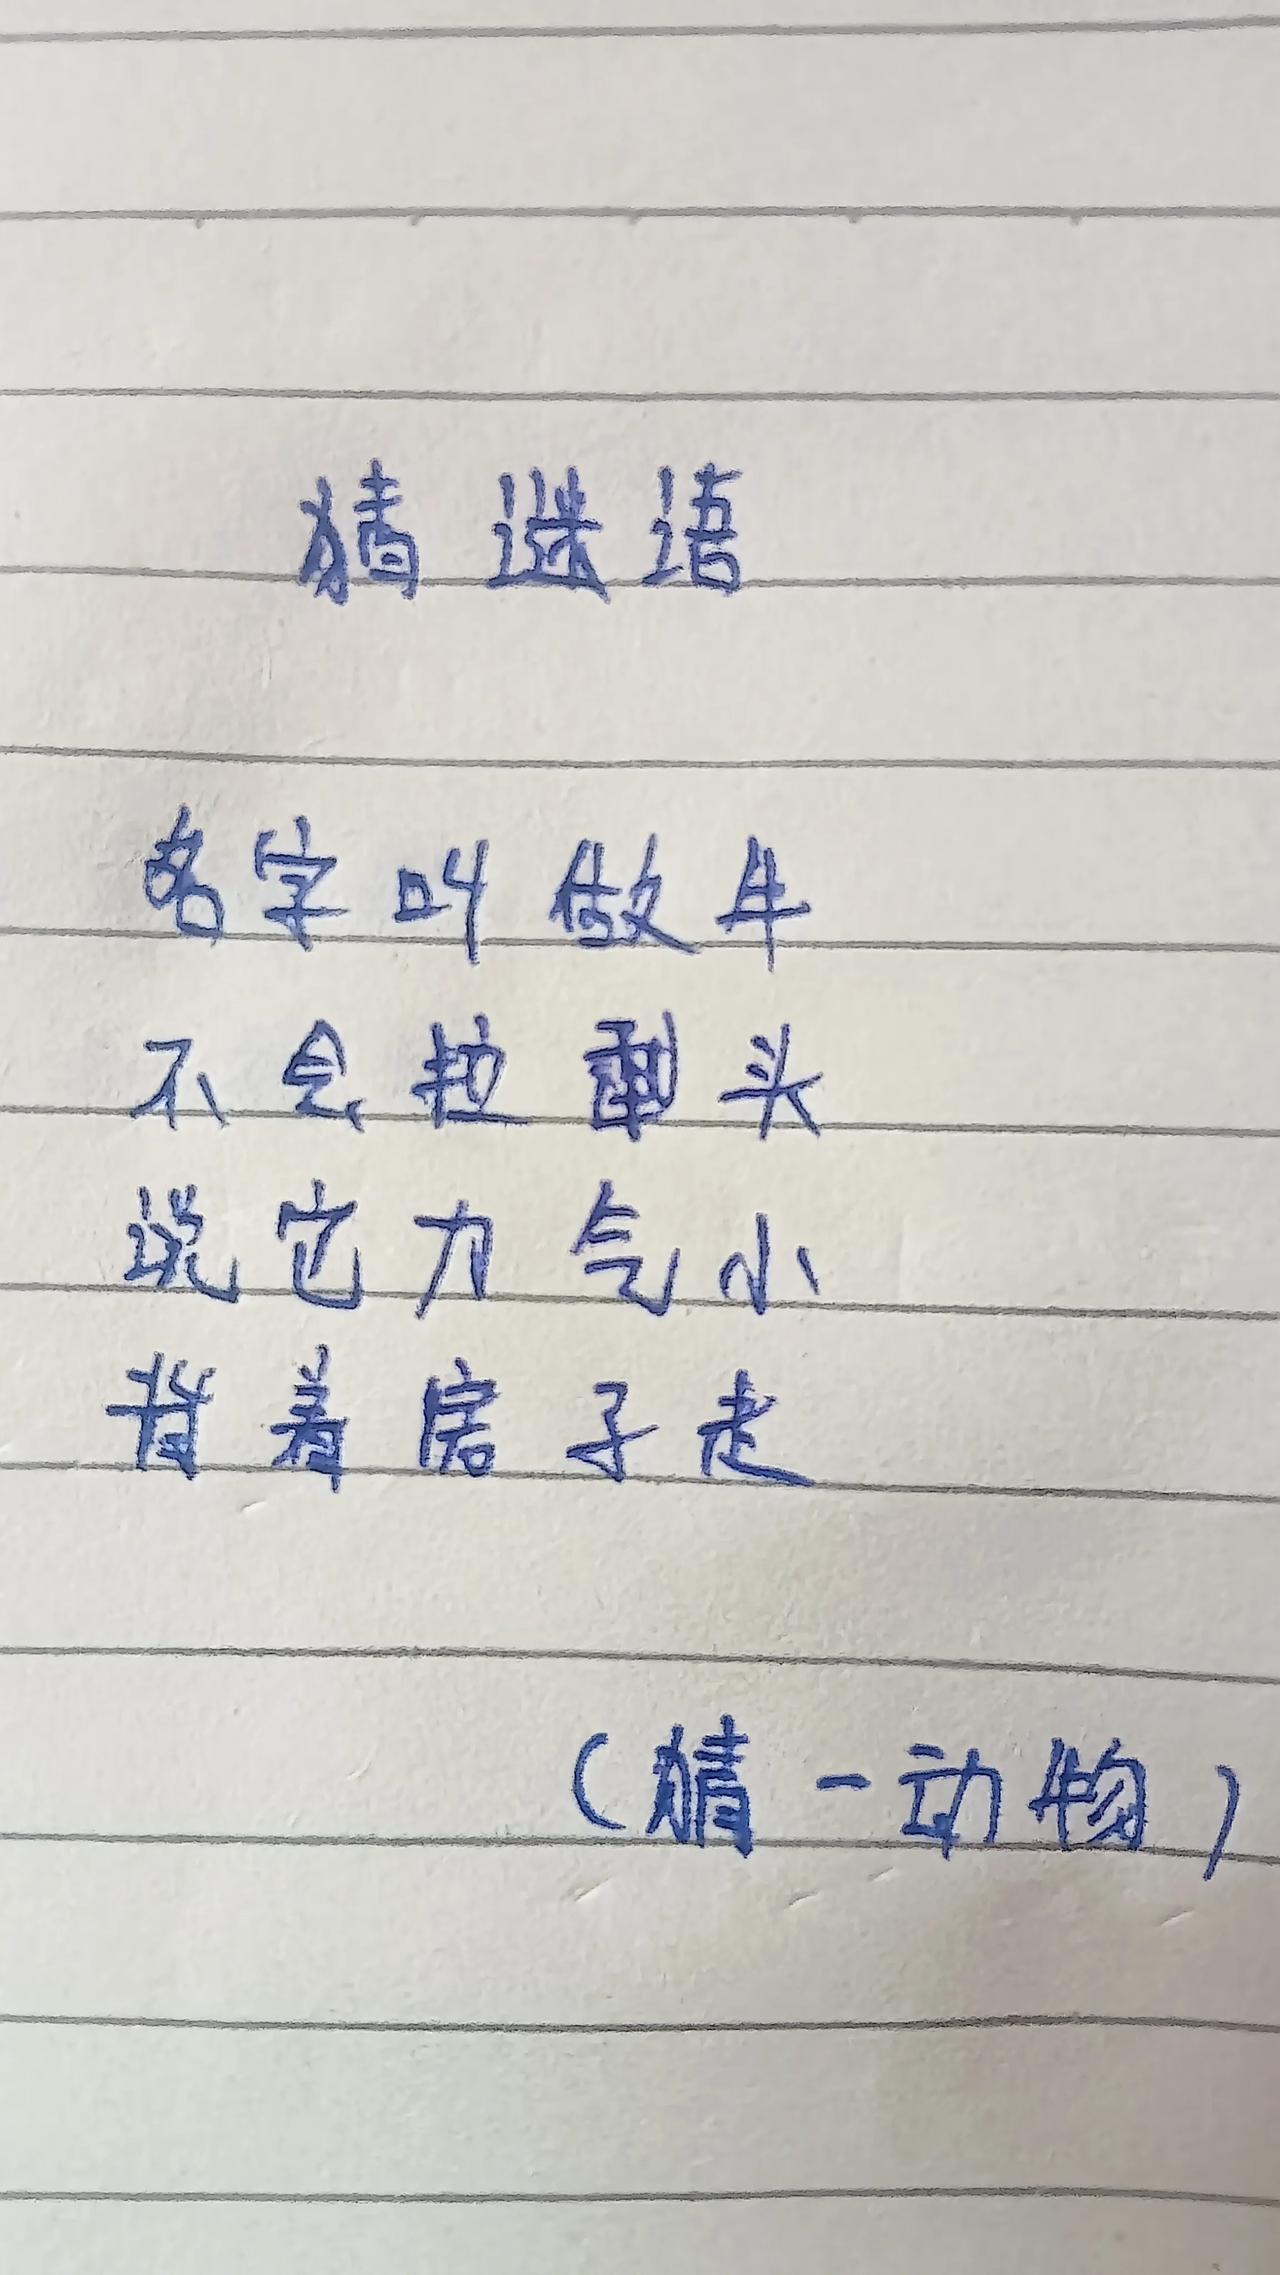 猜谜语
名字叫做牛
不会拉犁头
说它力气小
背着房子走
(猜一动物)